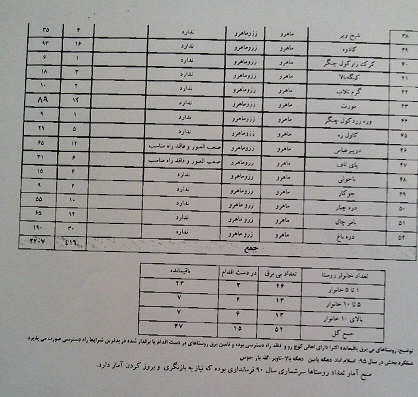 ۳۸ شیخ ویر ماهرو زز و ماهرو ندارد ۴ ۳۵
۳۹ کاندوه ماهرو زز و ماهرو ندارد ۱۶ ۹۳
۴۰ کرک زارکول چنگر ماهرو زز و ماهرو ندارد ۱ ۶
۴۱ کنگه بالا ماهرو زز و ماهرو ندارد ۳ ۱۸
۴۲ گرم تلاب ماهرو زز و ماهرو ندارد ۲ ۱۰
۴۳ مورت ماهرو زز و ماهرو ندارد ۱۲ ۸۸
۴۴ وره زردکول چنگر ماهرو زز و ماهرو ندارد ۱ ۹
۴۵ کاول ره ماهرو زز و ماهرو ندارد ۵ ۲۹
۴۶ دزیرعباس ماهرو زز و ماهرو صعب العبور و فاقد راه مناسب ۱۲ ۶۵
۴۷ پای تاف ماهرو زز و ماهرو صعب العبور و فاقد راه مناسب ۶ ۳۱
۴۸ ماهرو زز و ماهرو ندارد ۶ ۱۵
۴۹ جوکار ماهرو زز و ماهرو ندارد ۲ ۹
۵۰ دره چنار ماهرو زز و ماهرو ندارد ۱۰ ۵۵
۵۱ نامر چال ماهرو زز و ماهرو ندارد ۱۲ ۶۵
۵۲ دره باغ ماهرو زز و ماهرو ندارد ۳۰ ۱۹۰
جمع ۴۱۶ ۲۲۰۷
تعداد خانوار روستا تعداد بی برق در دست اقدام باقیمانده
۱ تا ۵ خانوار ۲۶ ۳ ۲۳
۵ تا ۱۰ خانوار ۱۳ ۶ ۷
بالای ۱۰ خانوار ۱۳ ۶ ۷
جمع کل ۵۱ ۱۵ ۳۷
توضیح: روستاهای بی برق باقیمانده اکثرا دارای اهالی کوچ رو و فاقد راه دسترسی بوده و تامین برق روستاهای در دست اقدام یا برقدار شده در بدترین شرایط راه دسترسی صورت می پذیرد.
عملکرد بخش در سال ۹۵: اسلام آباد- دهگاه پایین- دهگاه بالا-
منبع آمار تعداد روستاها سرشماری سال ۹۰ فرمانداری بوده که نیاز به بازنگری و بروز کردن آمار دارد.